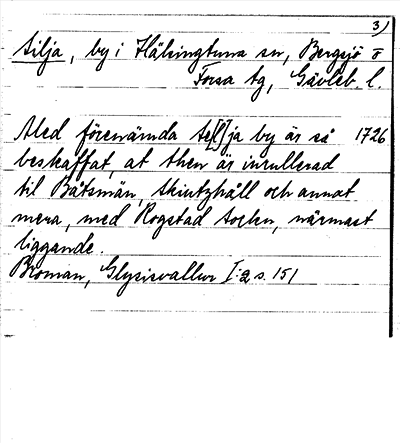 3)
silja, by i Hälsingtuna sn, Bergsjö o
Forsa tg, Gävleb. l.
Med förenämda se[l]ja by är så 1726
beskaffat, at then är inrullerad
til Båtsmän, skiutzhåll och annat
mera, med Rogstad sochn, närmast
liggande.
Broman, Glysisvallur I:2 s. 151